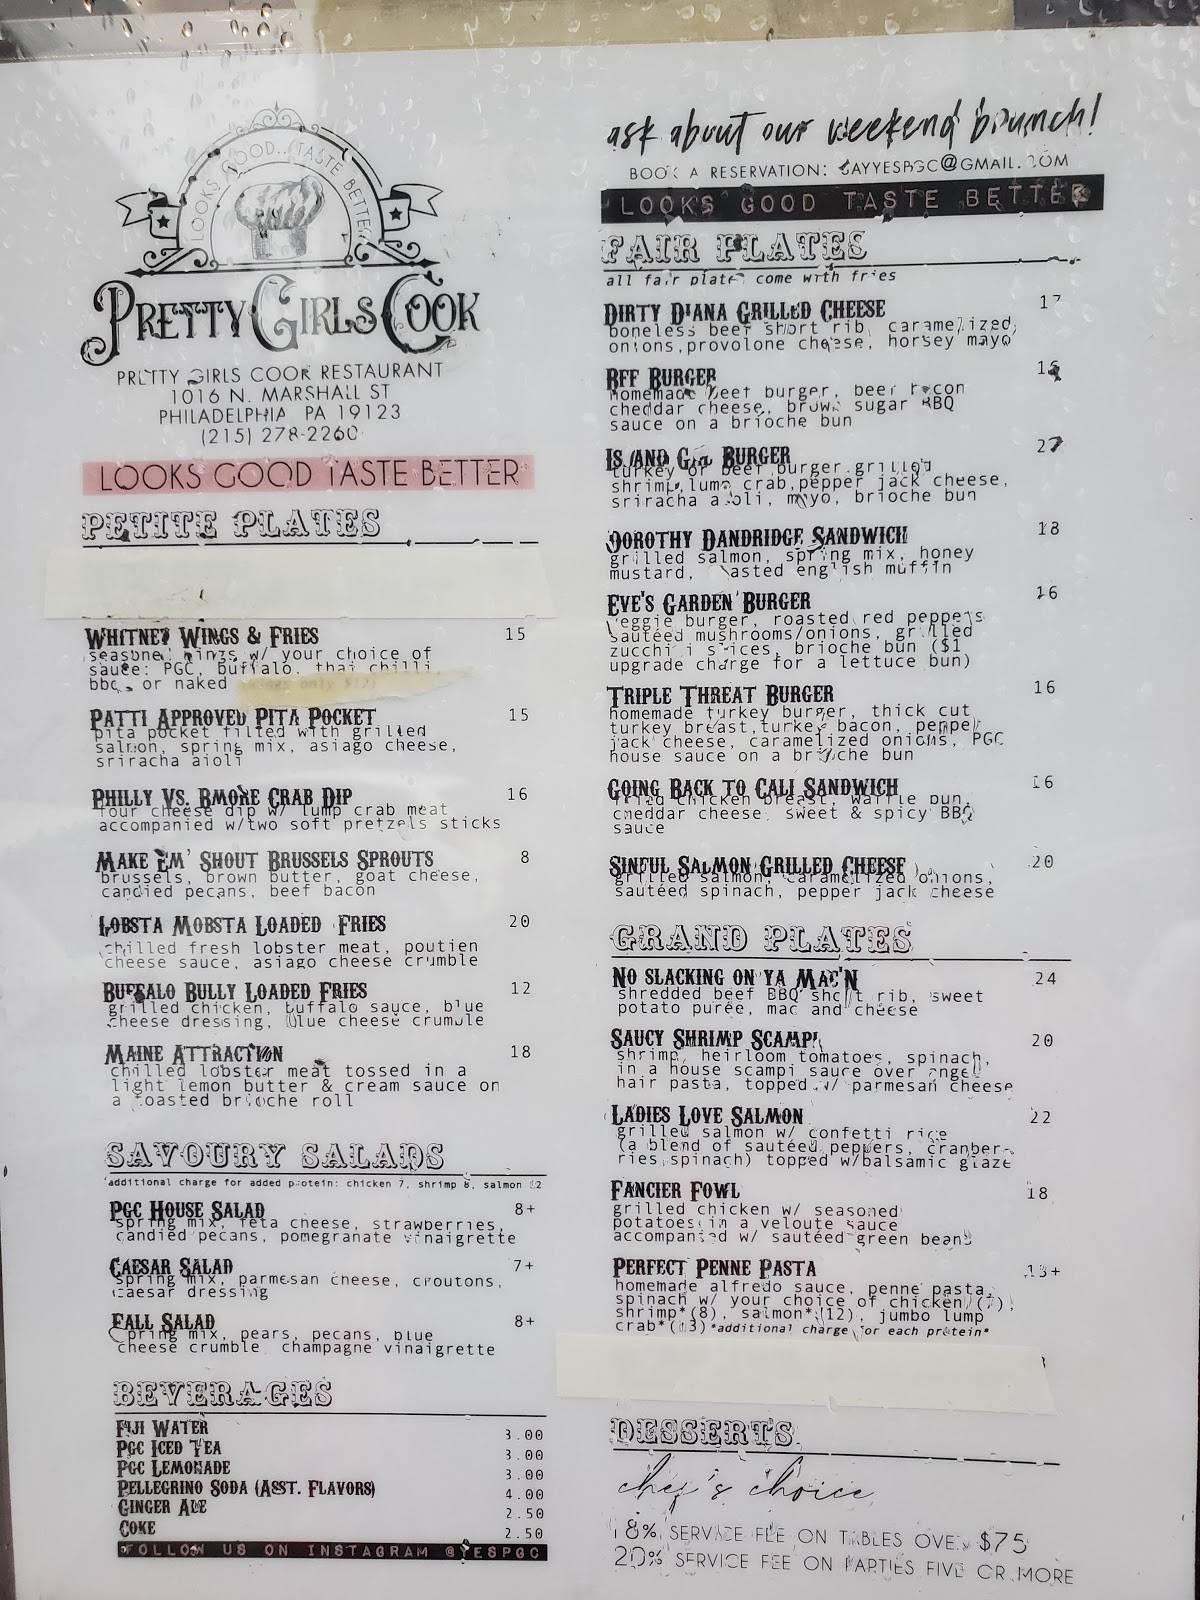 LOOKS GOOD...TASTE BETTER
PRETTY GIRLS COOK
PRETTY GIRLS COOK RESTAURANT
1016 N. MARSHALL ST
PHILADELPHIA PA 19123
(215) 278-2260
LOOKS GOOD TASTE BETTER
PETITE PLATES
WHITNEY WINGS & FRIES 15
seasoned wings w/ your choice of
sauce: PGC, buffalo, thai chilli,
bbq, or naked
PATTI APPROVED PITA POCKET 15
pita pocket filled with grilled
salmon, spring mix, asiago cheese,
sriracha aioli
PHILLY VS. BMORE CRAB DIP 16
four cheese dip w/ lump crab meat
accompanied w/two soft pretzels sticks
MAKE EM' SHOUT BRUSSELS SPROUTS 8
brussels, brown butter, goat cheese,
candied pecans, beef bacon
LOBSTA MOBSTA LOADED FRIES 20
chilled fresh lobster meat, poutien
cheese sauce, asiago cheese crumble
BUFFALO BULLY LOADED FRIES 12
grilled chicken, buffalo sauce, blue
cheese dressing, blue cheese crumble
MAINE ATTRACTION 18
chilled lobster meat tossed in a
light lemon butter & cream sauce on
a toasted brioche roll
SAVOURY SALADS
*additional charge for added protein: chicken 7, shrimp 8, salmon 12
PGC HOUSE SALAD 8+
spring mix, feta cheese, strawberries,
candied pecans, pomegranate vinaigrette
CAESAR SALAD 7+
spring mix, parmesan cheese, croutons,
caesar dressing
FALL SALAD 8+
spring mix, pears, pecans, blue
cheese crumble, champagne vinaigrette
BEVERAGES
FIJI WATER 3.00
PGC ICED TEA 3.00
PGC LEMONADE 3.00
PELLEGRINO SODA (ASST. FLAVORS) 4.00
GINGER ALE 2.50
COKE 2.50
FOLLOW US ON INSTAGRAM @YESPGC
ask about our weekend brunch!
BOOK A RESERVATION: SAYYESPGC@GMAIL.COM
LOOKS GOOD TASTE BETTER
FAIR PLATES
all fair plates come with fries
DIRTY DIANA GRILLED CHEESE 17
boneless beef short rib, caramelized
onions, provolone cheese, horsey mayo
BFF BURGER
homemade beef burger, beef bacon
cheddar cheese, brown sugar BBQ
sauce on a brioche bun
ISLAND GAL BURGER
turkey or beef burger, grilled
shrimp, lump crab, pepper jack cheese,
sriracha aioli, mayo, brioche bun
DOROTHY DANDRIDGE SANDWICH 18
grilled salmon, spring mix, honey
mustard, toasted english muffin
EVE'S GARDEN BURGER 16
veggie burger, roasted red peppers
sautéed mushrooms/onions, grilled
zucchini slices, brioche bun ($1
upgrade charge for a lettuce bun)
TRIPLE THREAT BURGER 16
homemade turkey burger, thick cut
turkey breast, turkey bacon, pepper
jack cheese, caramelized onions, PGC
house sauce on a brioche bun
GOING BACK TO CALI SANDWICH 16
fried chicken breast, waffle bun,
cheddar cheese, sweet & spicy BBQ
sauce
SINFUL SALMON GRILLED CHEESE 20
grilled salmon, caramelized onions,
sautéed spinach, pepper jack cheese
GRAND PLATES
NO SLACKING ON YA MAC'N 24
shredded beef BBQ short rib, sweet
potato purée, mac and cheese
SAUCY SHRIMP SCAMPI 20
shrimp, heirloom tomatoes, spinach,
in a house scampi sauce over angel
hair pasta, topped w/ parmesan cheese
LADIES LOVE SALMON 22
grilled salmon w/ confetti rice
(a blend of sautéed peppers, cranber-
ries, spinach) topped w/balsamic glaze
FANCIER FOWL 18
grilled chicken w/ seasoned
potatoes in a veloute sauce
accompanied w/ sautéed green beans
PERFECT PENNE PASTA 13+
homemade alfredo sauce, penne pasta,
spinach w/ your choice of chicken (7),
shrimp*(8), salmon*(12), jumbo lump
crab*(13) *additional charge for each protein*
DESSERTS
chef's choice
18% SERVICE FEE ON TABLES OVER $75
20% SERVICE FEE ON PARTIES FIVE OR MORE